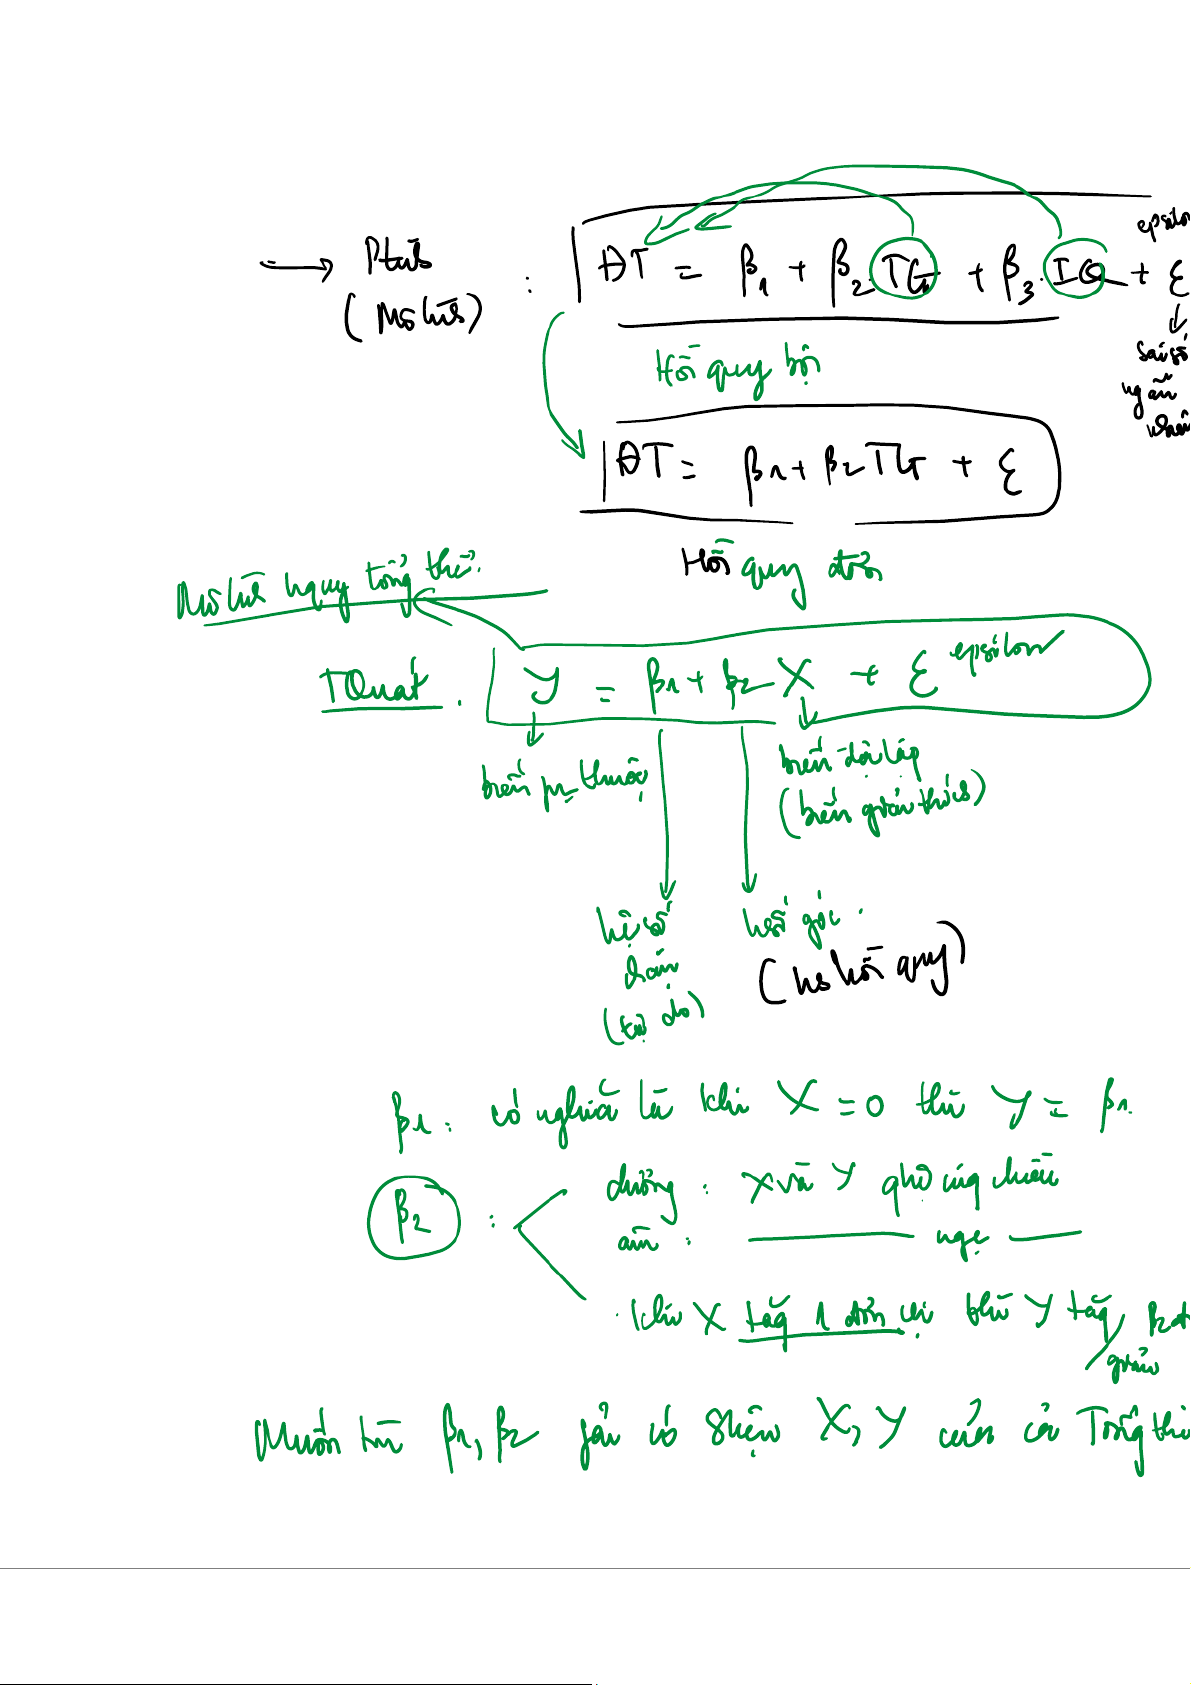 epsilon
→ Ptrình : ĐT = β1 + β2.TG + β3.IQ + ε
(Mô hình)
Sai số
ngẫu
nhiên
Hồi quy bội
ĐT = β1 + β2 TG + ε
Hồi quy đơn
Mô hình hquy tổng thể.
TQuát. Y = β1 + β2 X + ε epsilon
biến pụ thuộc
biến độc lập
(biến giải thích)
hệ số
chặn
(tự do)
hsố góc.
(hs hồi quy)
β1: có nghĩa là khi X = 0 thì Y = β1.
β2 :
dương: X và Y qhệ cùng chiều
âm : ngc
khi X tăng 1 đơn vị thì Y tăng/ β2
giảm
Muốn tìm β1, β2 phải có số liệu X, Y của cả Tổng thể